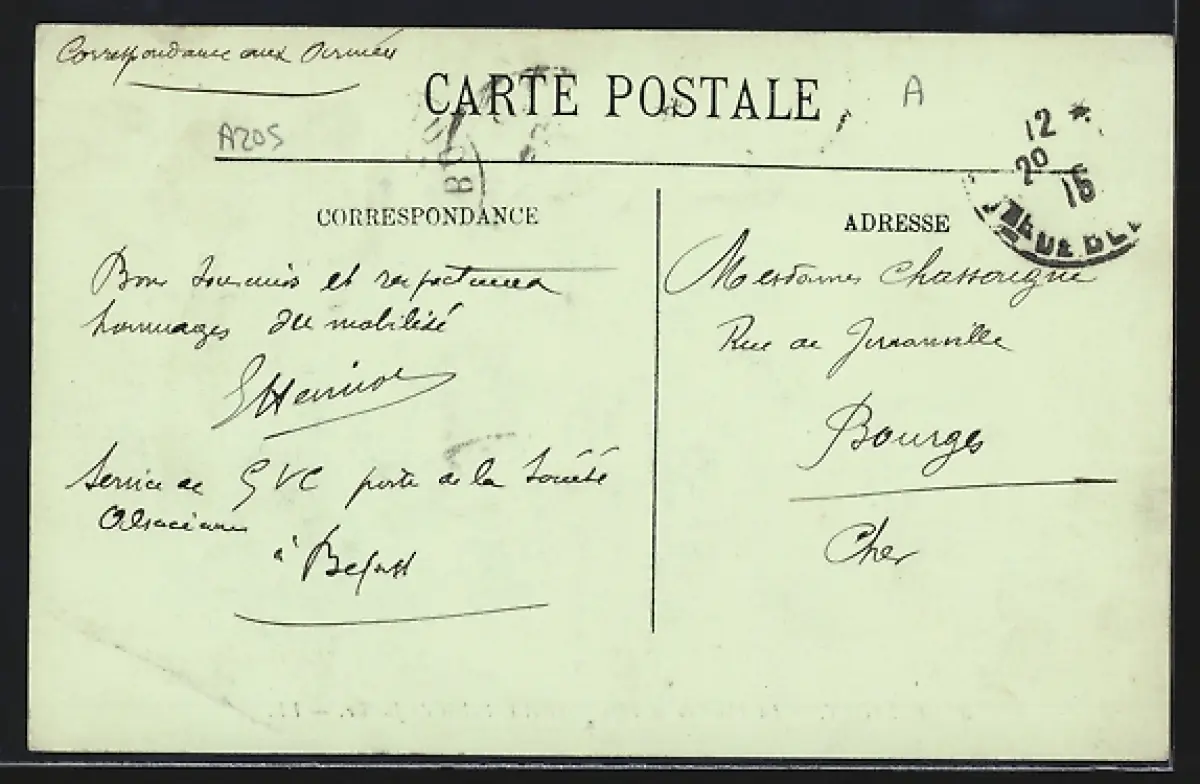 Correspondance aux Armées
CARTE POSTALE
A
A205
12 *
20
15
CORRESPONDANCE
ADRESSE
Bons souvenirs et respectueux
hommages du mobilisé
Mesdames Chassaigne
Rue de
Bourges
Cher
Service de GVC porte de la Société
Alsacienne
à Belfort